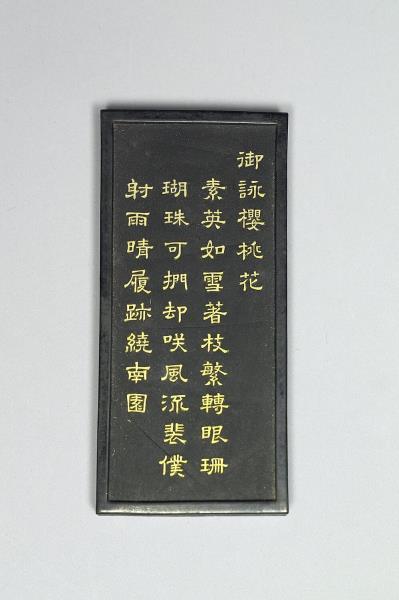 御詠櫻桃花
素英如雪著枝繁轉眼珊
瑚珠可捫却咲風流裴僕
射雨晴履跡繞南園